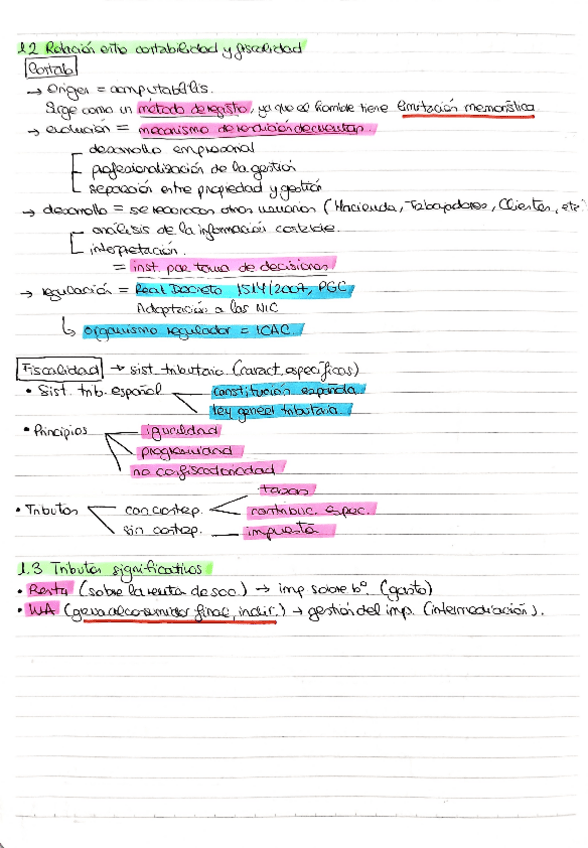 1.2 Relación entre contabilidad y fiscalidad
Contab
→ Origen = computabilis.
Surge como un método de registro, ya que el hombre tiene limitación memorística
→ evolución = mecanismo de rendición de cuentas.
desarrollo empresarial
profesionalización de la gestión
separación entre propiedad y gestión
→ desarrollo = se reconocen otros usuarios (Hacienda, Trabajadores, Clientes, etc)
análisis de la información contable.
interpretación.
= inst. para toma de decisiones
→ regulación = Real Decreto 1514/2007, PGC
Adaptación a las NIC
↳ organismo regulador = ICAC
Fiscalidad → sist. tributario (caract. específicas)
• Sist. trib. español constitución española
ley general tributaria
• Principios igualdad
progresividad
no confiscatoriedad
tasas
• Tributos con contrap. contribuc. espec.
sin contrap. impuesto
1.3 Tributos significativos
• Renta (sobre la renta de soc.) → imp sobre bº (gasto)
• IVA (grava al consumidor final, indir.) → gestión del imp. (intermediación).